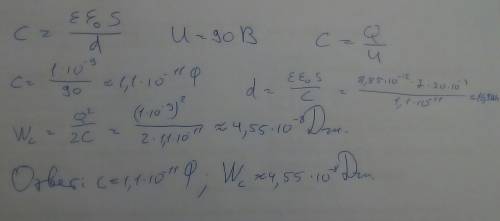 C = εε₀S/d   U = 90 В   C = Q/U
C = 1·10⁻⁹/90 = 1,1·10⁻¹¹ Ф   d = εε₀S/C =
W_c = Q²/2C = (1·10⁻⁹)²/2·1,1·10⁻¹¹ ≈ 4,55·10⁻⁸ Дж.
Ответ: C = 1,1·10⁻¹¹ Ф; W_c ≈ 4,55·10⁻⁸ Дж.